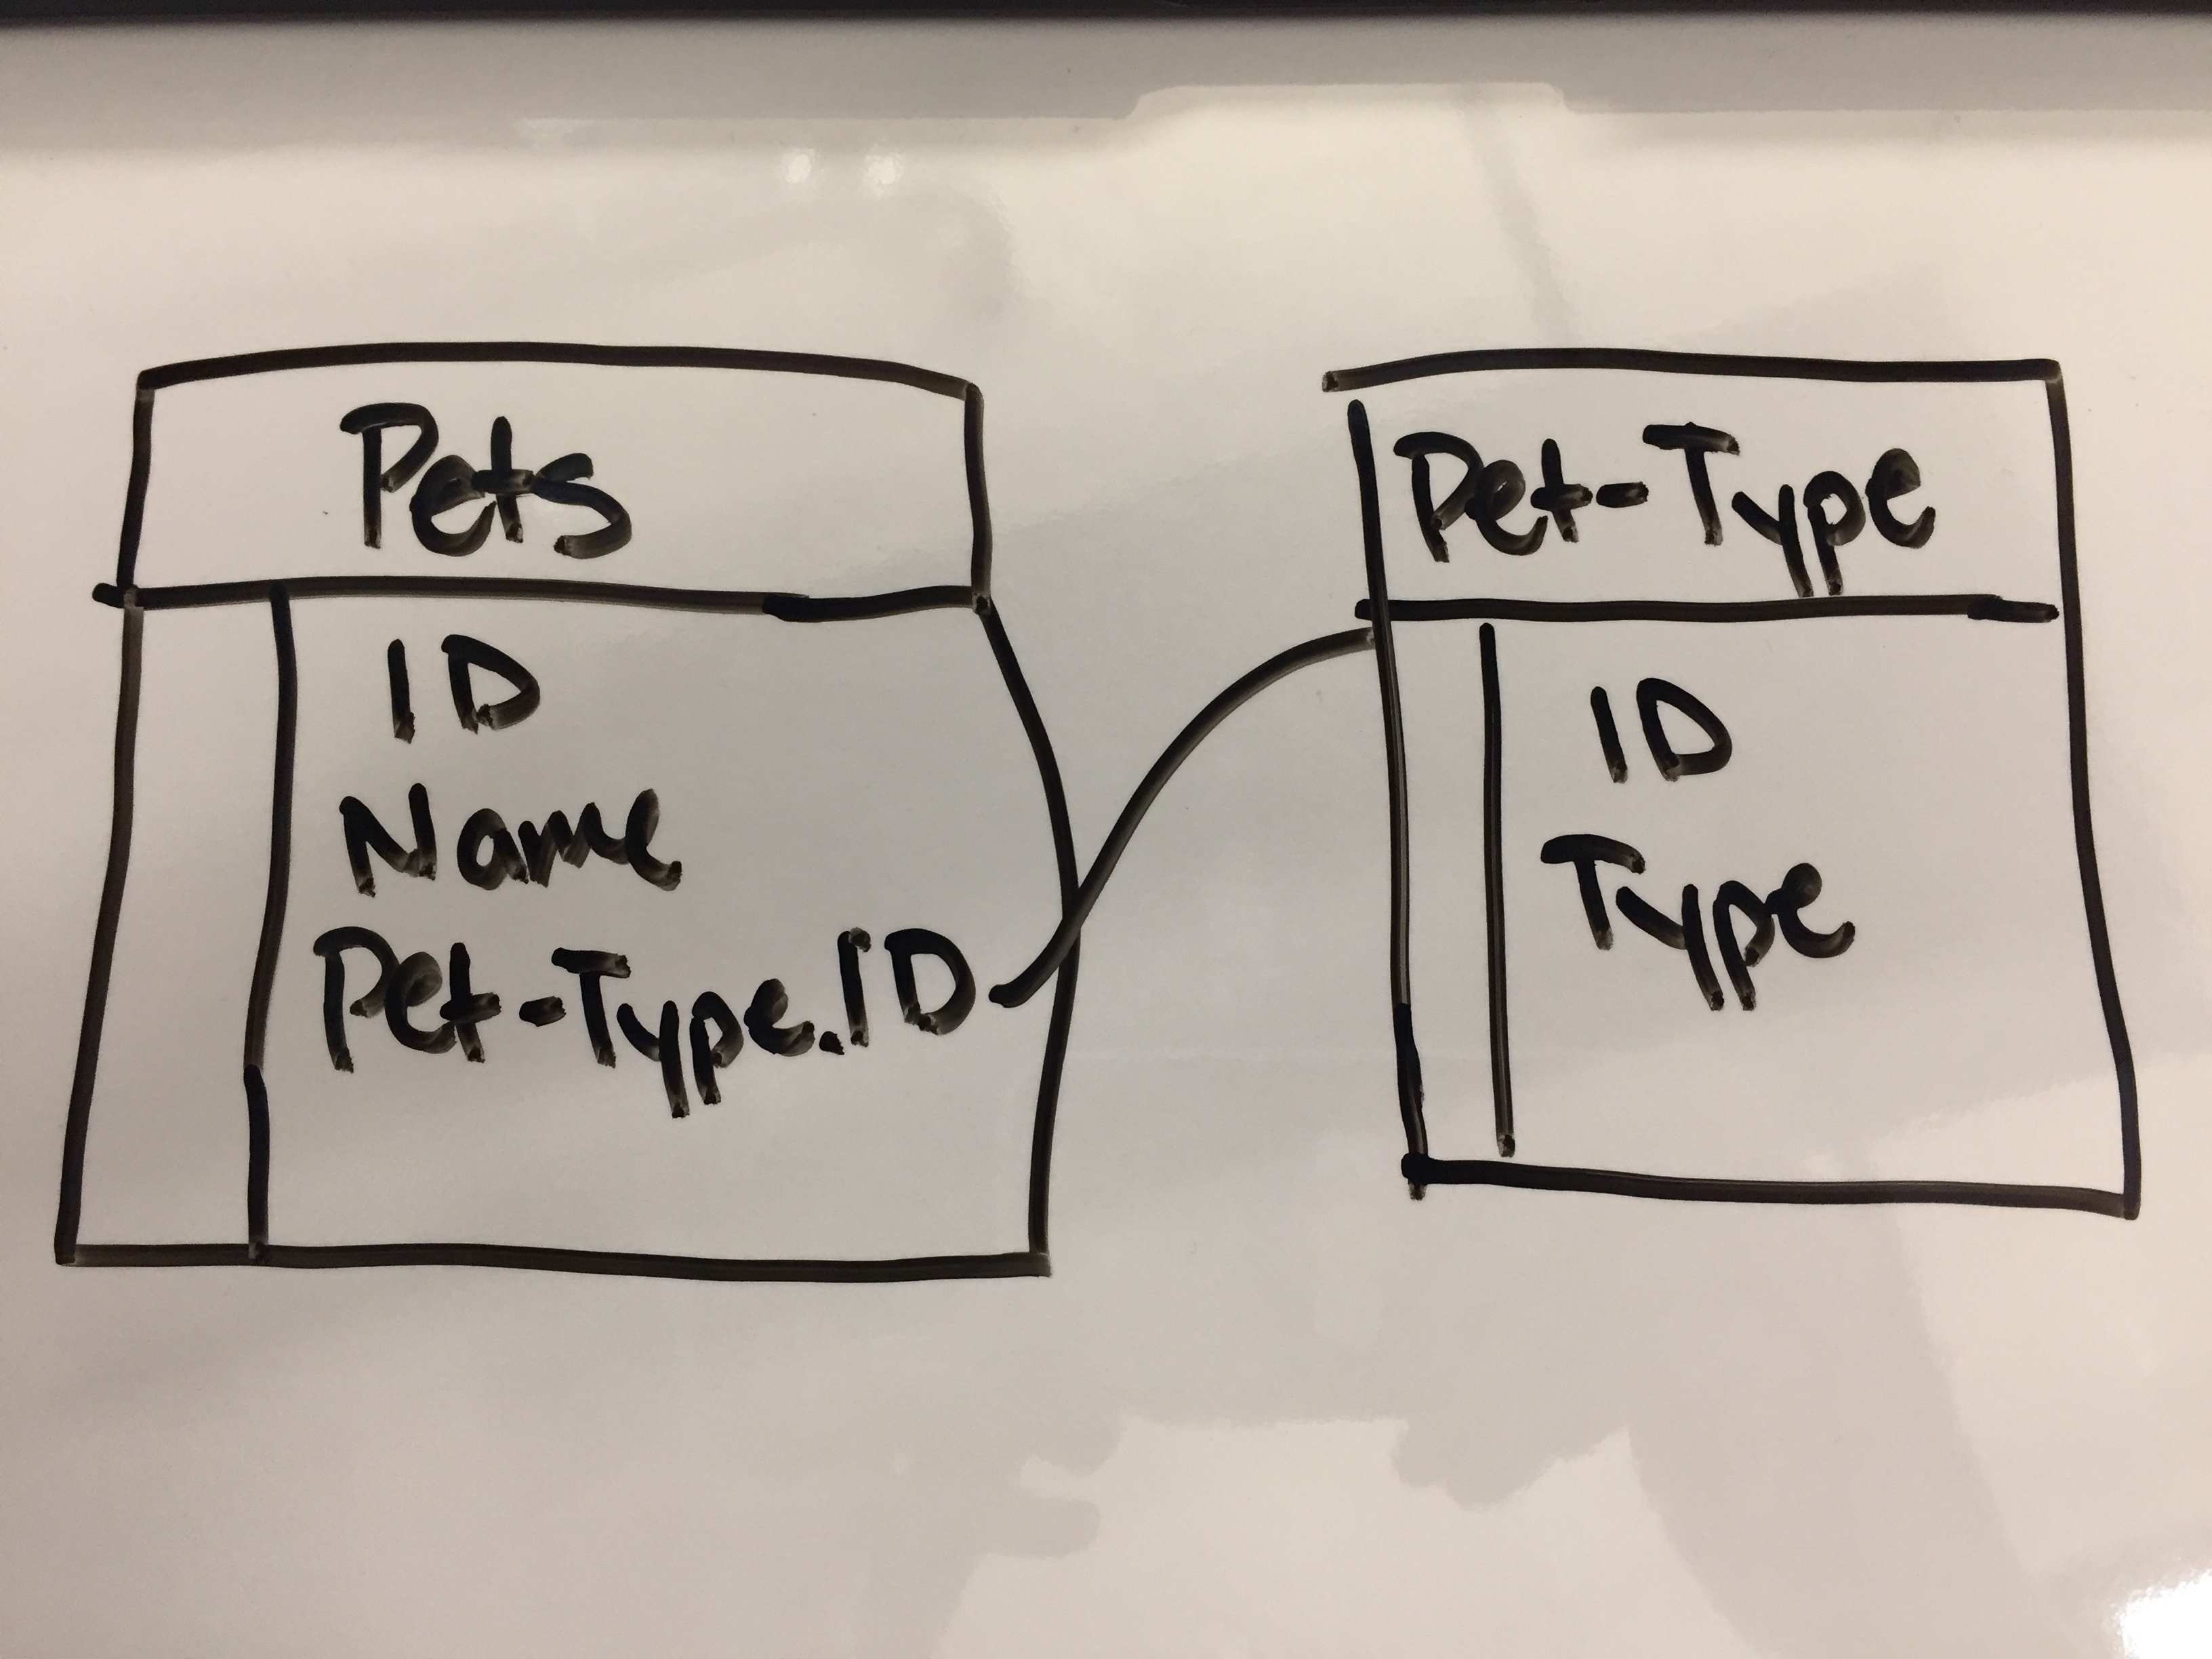 Pets
ID
Name
Pet-Type.ID
Pet-Type
ID
Type